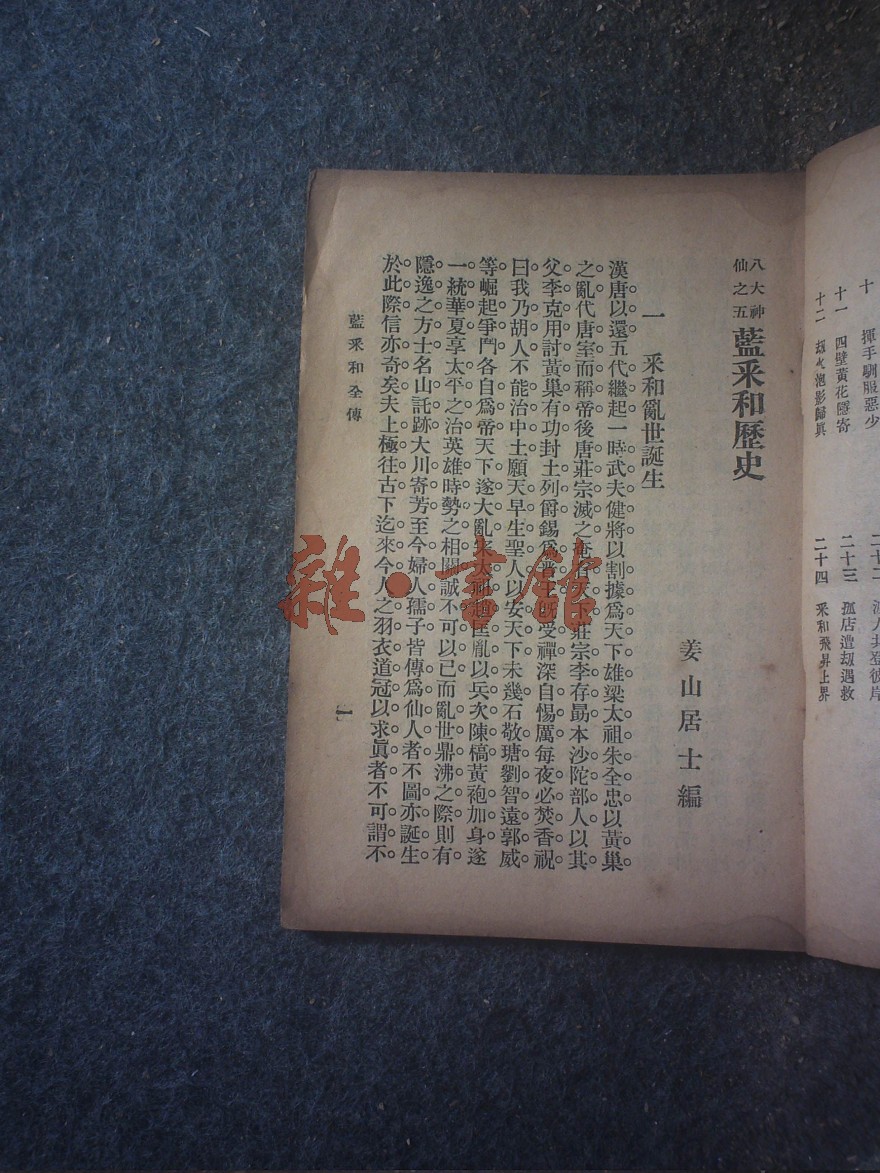 十 揮手馴服惡少
十一 四壁黃花隱寄
十二 影歸眞
人共登彼岸
二十三 孤店遭刼遇救
二十四 采和飛昇上界
八大神仙之五 藍采和歷史
姜山居士編
一 采和亂世誕生
漢唐以還五代繼起一時武夫健將以割據爲天下雄梁太祖朱全忠以黃巢
之亂代唐室而稱帝後唐莊宗滅之奄有天下莊宗李存勗本沙陀部人以其
父李克用討黃巢有功封土列爵錫爲晉王旣受禪深自惕厲每夜必焚香祝
曰我乃胡人不能治中土願天早生聖人以安天下未幾石敬瑭劉智遠郭威
等崛起爭鬥各自爲帝天下遂大亂宋太祖趙匡胤以兵次陳槁黃袍加身遂
一統華夏享太平之治英雄時勢之相關誠不可以已而亂世鼎沸之際則有
隱逸之方士名山託跡大川寄芳至今婦人孺子皆傳爲仙人者不圖亦誕生
於此際信亦奇矣夫上極往古下迄來今人之羽衣道冠以求眞者不可謂不
藍采和全傳
一
雜·書館